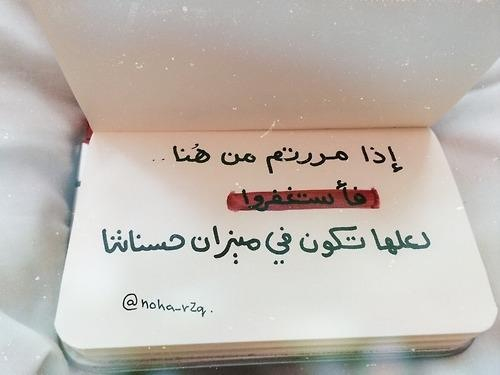 إذا مررتم من هُنا..
فأستغفروا
لعلها تكون في ميزان حسناتنا
@noha_rzq.